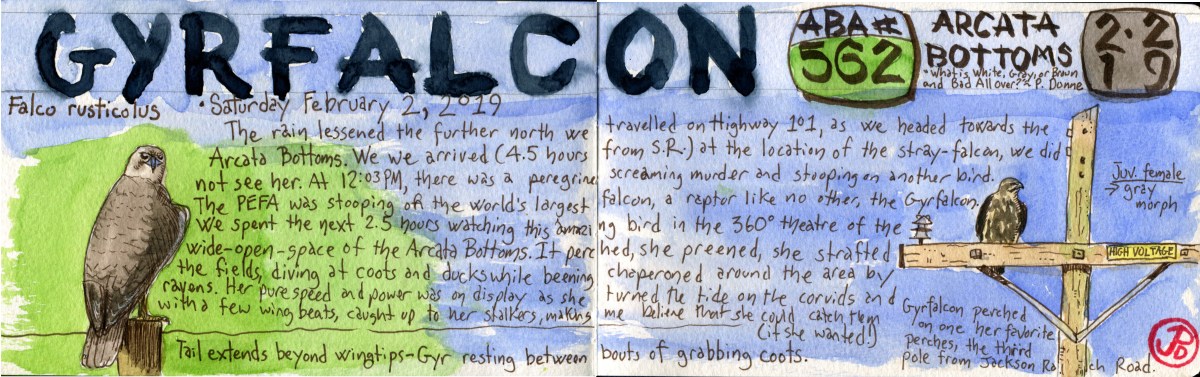 GYRFALCON
ABA#
562
ARCATA
BOTTOMS
•What is White, Gray, or Brown
and Bad All over?? P. Donne
2·2
19
Falco rusticolus
•Saturday February 2, 2019
The rain lessened the further north we travelled on Highway 101, as we headed towards the
Arcata Bottoms. We we arrived (4.5 hours from S.R.) at the location of the stray-falcon, we did
not see her. At 12:03 PM, there was a peregrine screaming murder and stooping on another bird.
The PEFA was stooping on the world's largest falcon, a raptor like no other, the Gyrfalcon.
We spent the next 2.5 hours watching this amazing bird in the 360° theatre of the
wide-open-space of the Arcata Bottoms. It perched, she preened, she strafted
the fields, diving at coots and ducks while beening chaperoned around the area by
rayons. Her pure speed and power was on display as she turned the tide on the corvids and
with a few wing beats, caught up to her stalkers, making me believe that she could catch them
(if she wanted!)
Tail extends beyond wingtips-Gyr resting between bouts of grabbing coots.
Juv. female
→ gray
morph
HIGH VOLTAGE
Gyrfalcon perched
on one her favorite
perches, the third
pole from Jackson Ranch Road.